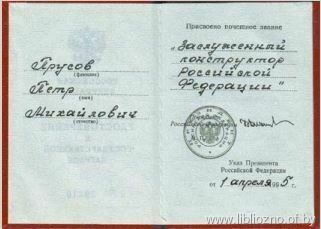 Прусов
(фамилия)
Петр
(имя)
Михайлович
(отчество)
Присвоено почетное звание
"Заслуженный
конструктор
Российской
Федерации"
Указ Президента
Российской Федерации
от 1 апреля 1995 г.
www.libliozno.of.by